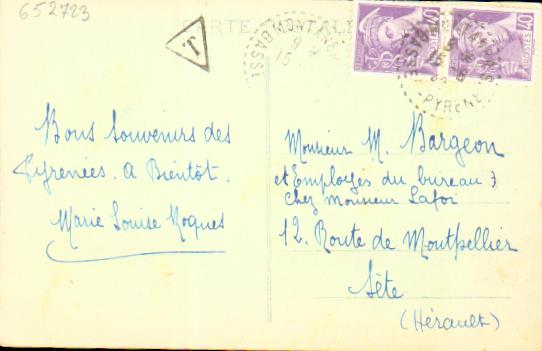 652723
CARTE POSTALE
T
BASSES
PYRÉNÉES
POSTES 40
POSTES 40
Bons Souvenirs des
Pyrenées. A Bientôt.
Marie Louise Roques
Monsieur M. Bargeon
et Employés du bureau 7
chez Monsieur Lafoi
12. Route de Montpellier
Sète
(Hérault)